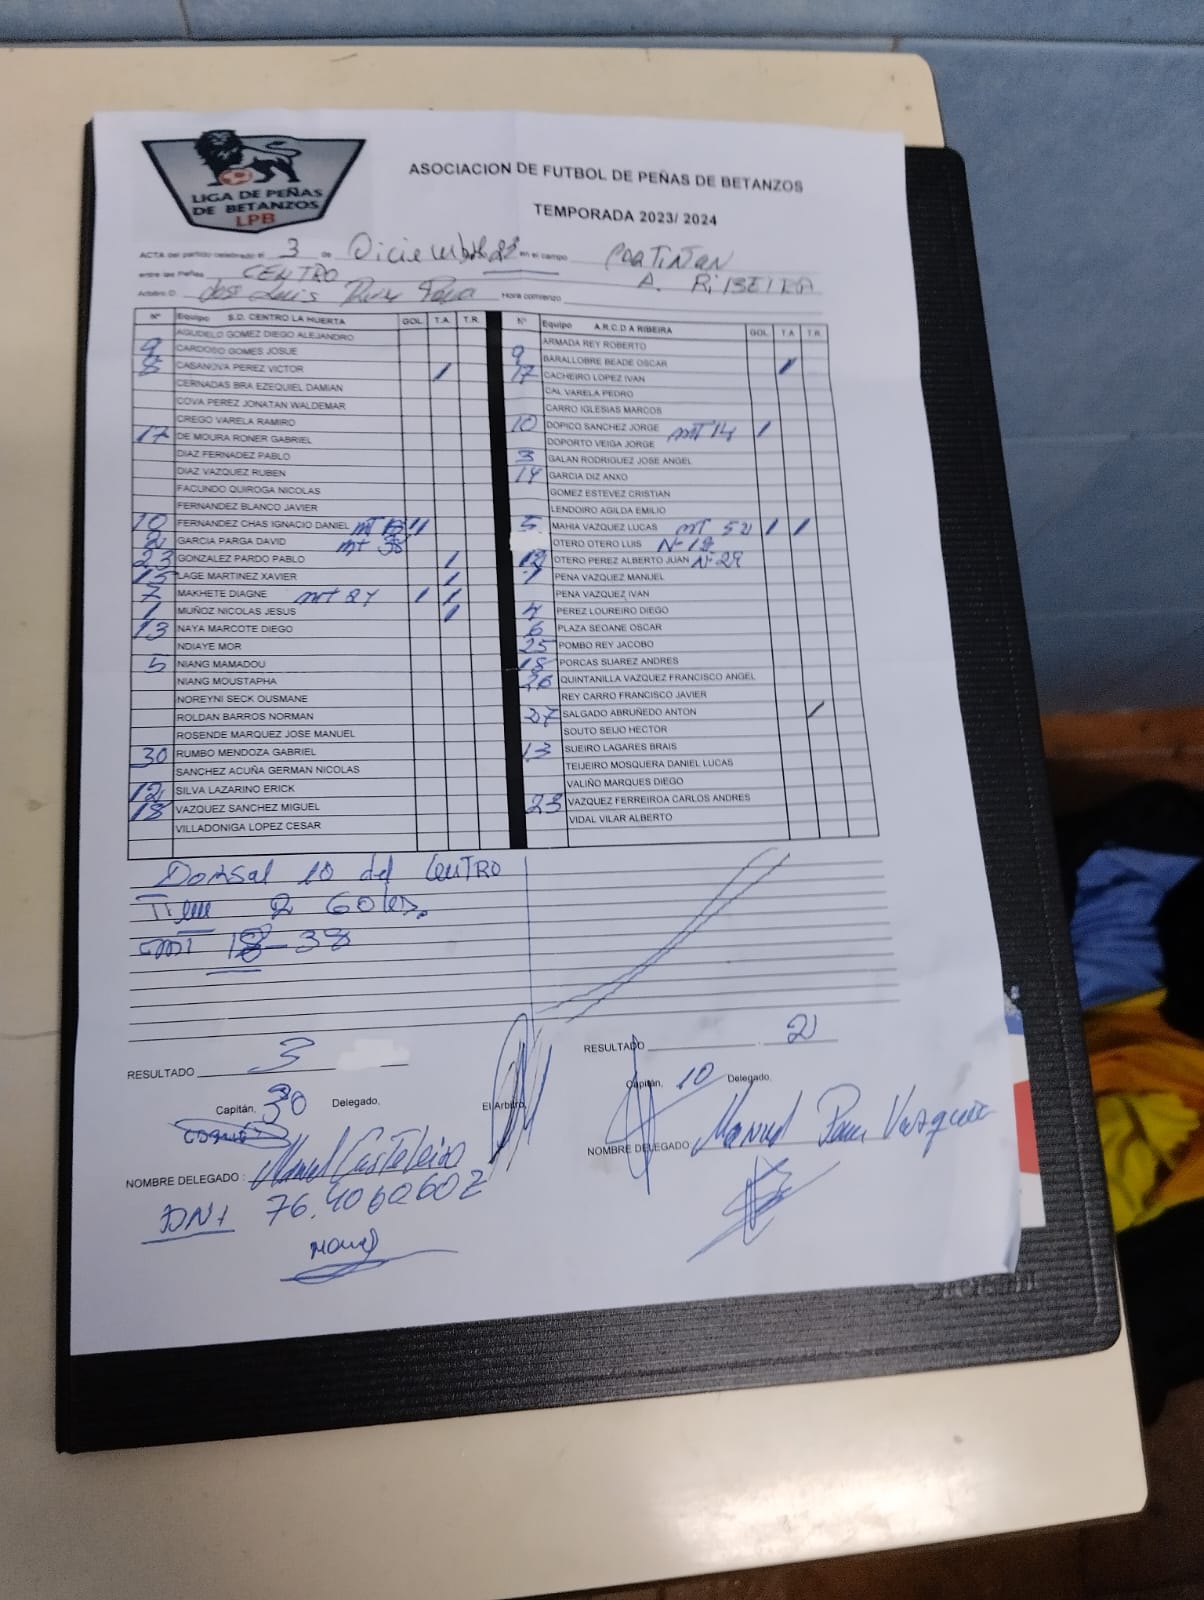 LIGA DE PEÑAS
DE BETANZOS
LPB
ASOCIACION DE FUTBOL DE PEÑAS DE BETANZOS
TEMPORADA 2023/ 2024
ACTA del partido celebrado el 3 de Diciembre en el campo
entre las Peñas CENTRO A. RIBEIRA
Arbitro D. Jose Luis Hora comienzo
Nº Equipo S.D. CENTRO LA HUERTA GOL T.A. T.R.
AGUDELO GOMEZ DIEGO ALEJANDRO
9 CARDOSO GOMES JOSUE
8 CASANOVA PEREZ VICTOR /
CERNADAS BRA EZEQUIEL DAMIAN
COVA PEREZ JONATAN WALDEMAR
CREGO VARELA RAMIRO
17 DE MOURA RONER GABRIEL
DIAZ FERNADEZ PABLO
DIAZ VAZQUEZ RUBEN
FACUNDO QUIROGA NICOLAS
FERNANDEZ BLANCO JAVIER
10 FERNANDEZ CHAS IGNACIO DANIEL MT 18 //
2 GARCIA PARGA DAVID MT 38
23 GONZALEZ PARDO PABLO /
15 LAGE MARTINEZ XAVIER /
7 MAKHETE DIAGNE MT 27 / /
1 MUÑOZ NICOLAS JESUS /
13 NAYA MARCOTE DIEGO
NDIAYE MOR
5 NIANG MAMADOU
NIANG MOUSTAPHA
NOREYNI SECK OUSMANE
ROLDAN BARROS NORMAN
ROSENDE MARQUEZ JOSE MANUEL
30 RUMBO MENDOZA GABRIEL
SANCHEZ ACUÑA GERMAN NICOLAS
12 SILVA LAZARINO ERICK
18 VAZQUEZ SANCHEZ MIGUEL
VILLADONIGA LOPEZ CESAR
Nº Equipo A.R.C.D A RIBEIRA GOL T.A. T.R.
ARMADA REY ROBERTO
9 BARALLOBRE BEADE OSCAR /
17 CACHEIRO LOPEZ IVAN
CAL VARELA PEDRO
CARRO IGLESIAS MARCOS
10 DOPICO SANCHEZ JORGE MT 14 /
DOPORTO VEIGA JORGE
3 GALAN RODRIGUEZ JOSE ANGEL
14 GARCIA DIZ ANXO
GOMEZ ESTEVEZ CRISTIAN
LENDOIRO AGILDA EMILIO
5 MAHIA VAZQUEZ LUCAS MT 52 / /
OTERO OTERO LUIS
OTERO PEREZ ALBERTO JUAN Nº 29
7 PENA VAZQUEZ MANUEL
PENA VAZQUEZ IVAN
4 PEREZ LOUREIRO DIEGO
6 PLAZA SEOANE OSCAR
25 POMBO REY JACOBO
18 PORCAS SUAREZ ANDRES
26 QUINTANILLA VAZQUEZ FRANCISCO ANGEL
REY CARRO FRANCISCO JAVIER
27 SALGADO ABRUÑEDO ANTON /
SOUTO SEIJO HECTOR
13 SUEIRO LAGARES BRAIS
TEIJEIRO MOSQUERA DANIEL LUCAS
VALIÑO MARQUES DIEGO
23 VAZQUEZ FERREIROA CARLOS ANDRES
VIDAL VILAR ALBERTO
Dorsal 10 del CENTRO
Tiene 2 Goles.
MT 18-38
RESULTADO 3
RESULTADO 2
Capitán, 30 Delegado,
El Arbitro,
Capitán, 10 Delegado,
NOMBRE DELEGADO : Manuel Casteleiro
NOMBRE DELEGADO Manuel Pena Vazquez
DNI 76.406260Z